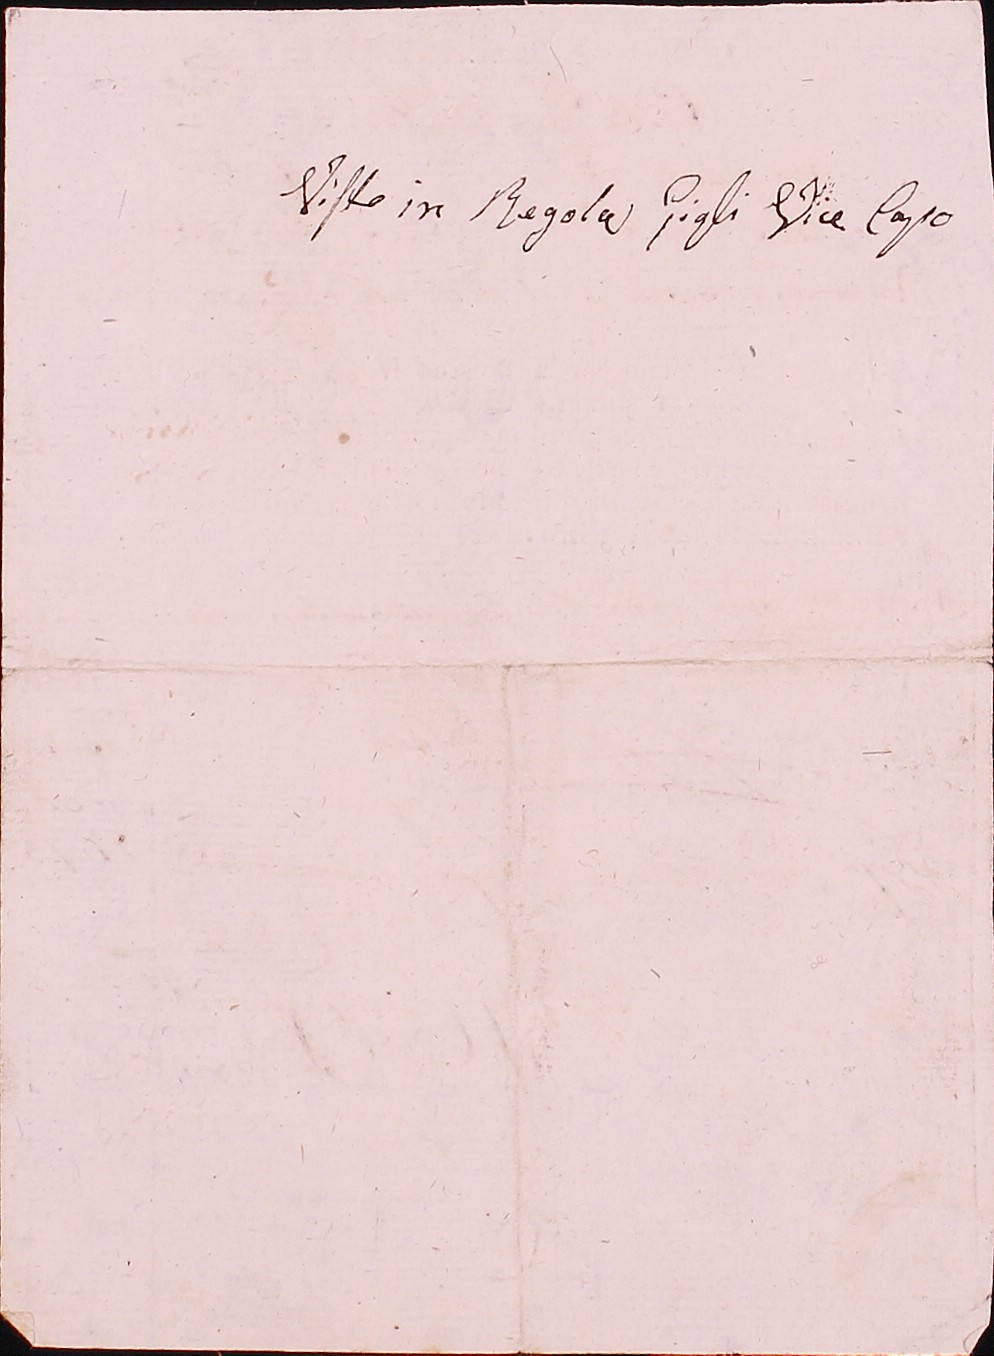 Visto in Regola Gigli Vice Capo